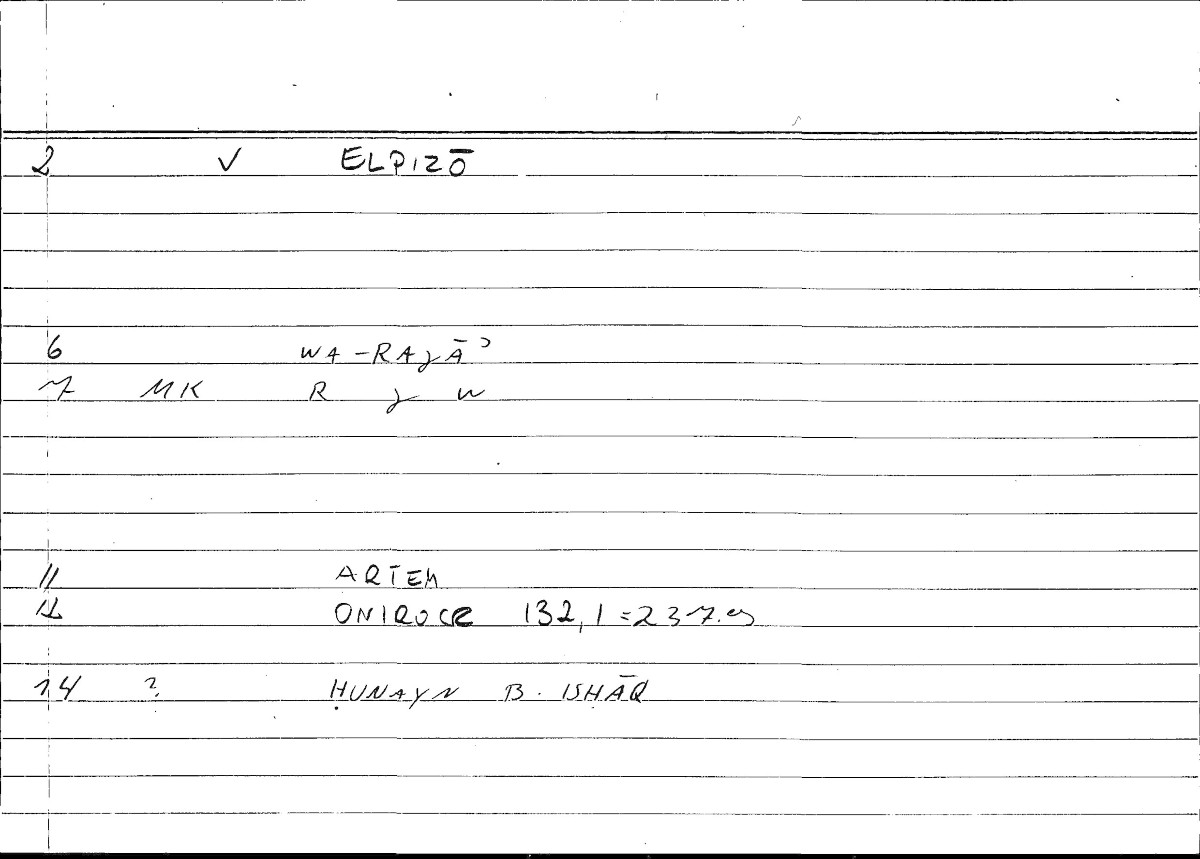 2 V ELPIZŌ
6 WA-RAǧĀʾ
7 MK R ǧ W
11 ARTEM
12 ONIROCR 132,1 = 237.
14 ? ḤUNAYN B. ISḤĀQ